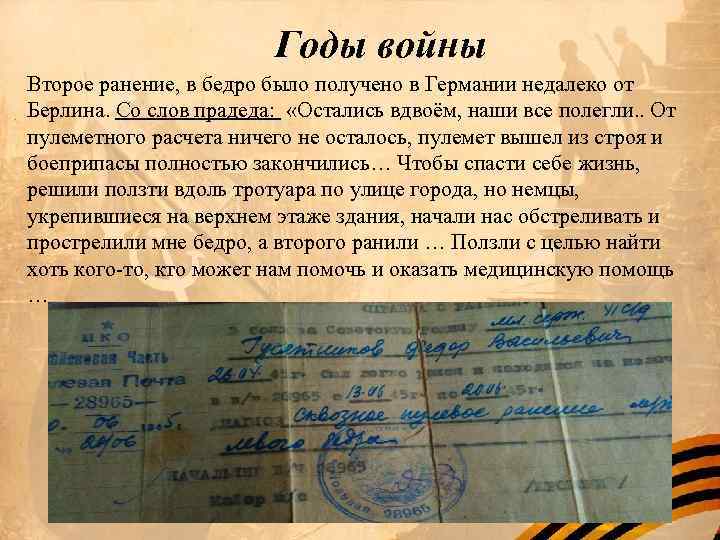 Годы войны
Второе ранение, в бедро было получено в Германии недалеко от
Берлина. Со слов прадеда: «Остались вдвоём, наши все полегли.. От
пулеметного расчета ничего не осталось, пулемет вышел из строя и
боеприпасы полностью закончились… Чтобы спасти себе жизнь,
решили ползти вдоль тротуара по улице города, но немцы,
укрепившиеся на верхнем этаже здания, начали нас обстреливать и
прострелили мне бедро, а второго ранили … Ползли с целью найти
хоть кого-то, кто может нам помочь и оказать медицинскую помощь
…
НКО
Войсковая Часть
Полевая Почта
28965
в боях за Советскую родину мл. серж.
Гусятников Федор Васильевич
был легко ранен и находился на
в в/ч. 28965 с 13.06 45г. по 20.06 45г.
сквозное пулевое ранение
левого бедра
НАЧАЛЬНИК В/Ч 28965
Майор м/с
28965